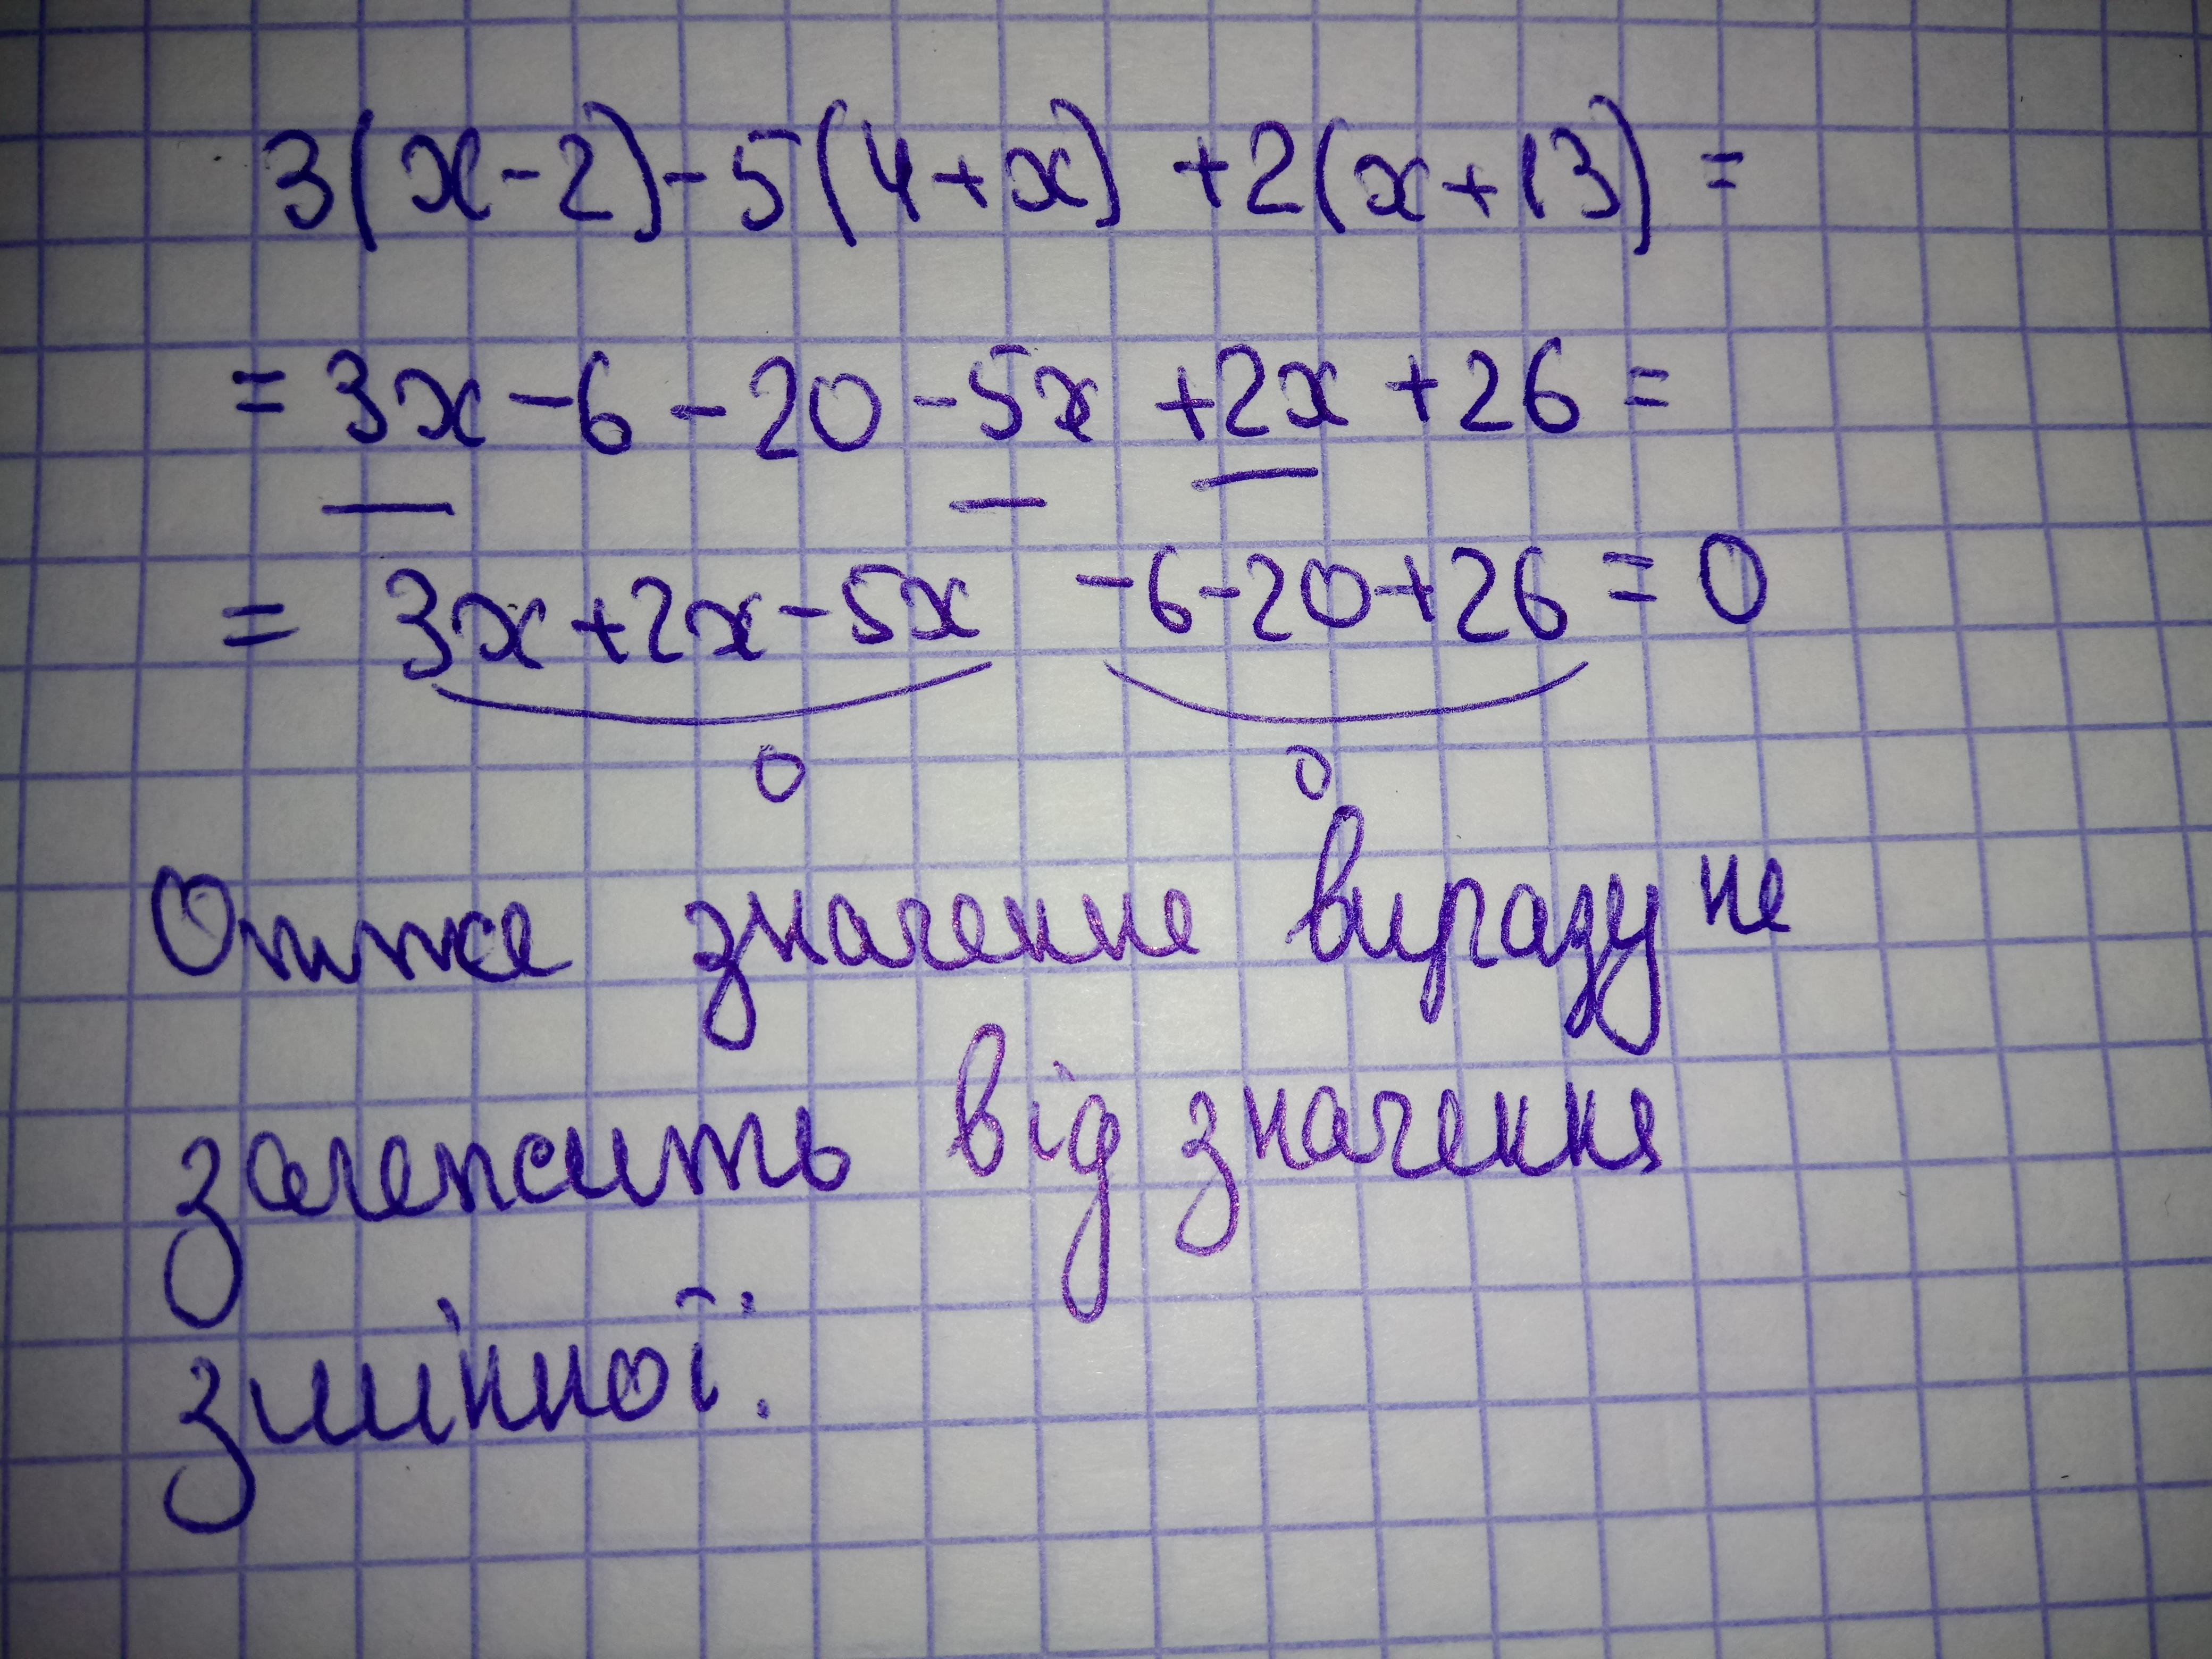 3(x-2)-5(4+x)+2(x+13)=
=3x-6-20-5x+2x+26=
=3x+2x-5x -6-20+26=0
0 0
Отже значення виразу не
залежить від значення
змінної.